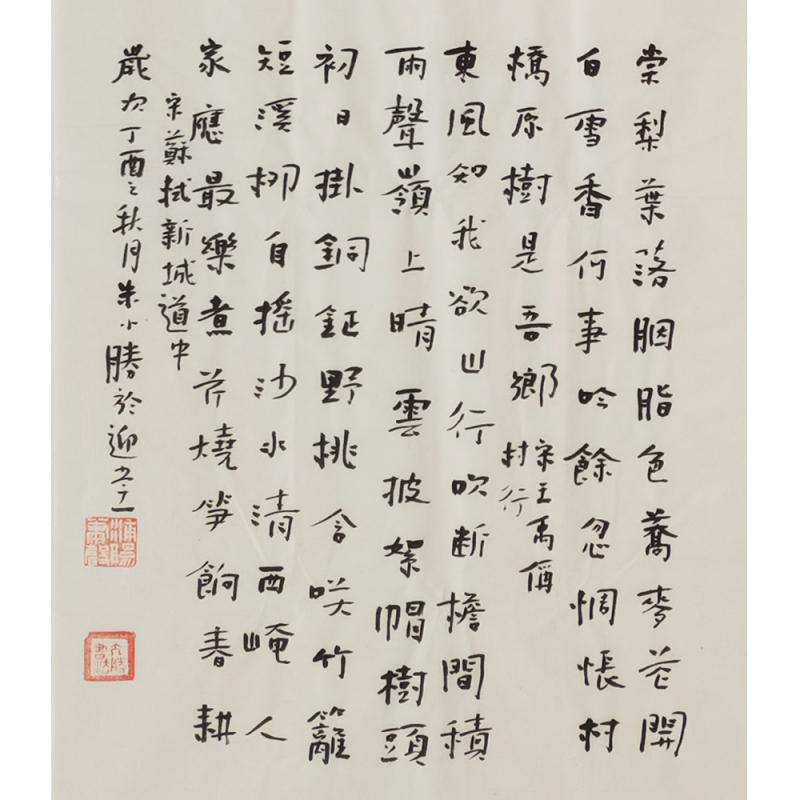 棠梨葉落胭脂色蕎麥花開
白雪香何事吟餘忽惆悵村
橋原樹是吾鄉
宋王禹偁
村行
東風知我欲山行吹断檐間積
雨聲嶺上晴雲披絮帽樹頭
初日掛銅鉦野桃含咲竹籬
短溪柳自搖沙水清西崦人
家應最樂煮芹燒笋餉春耕
宋蘇軾新城道中
歲次丁酉之秋月朱小勝於迎